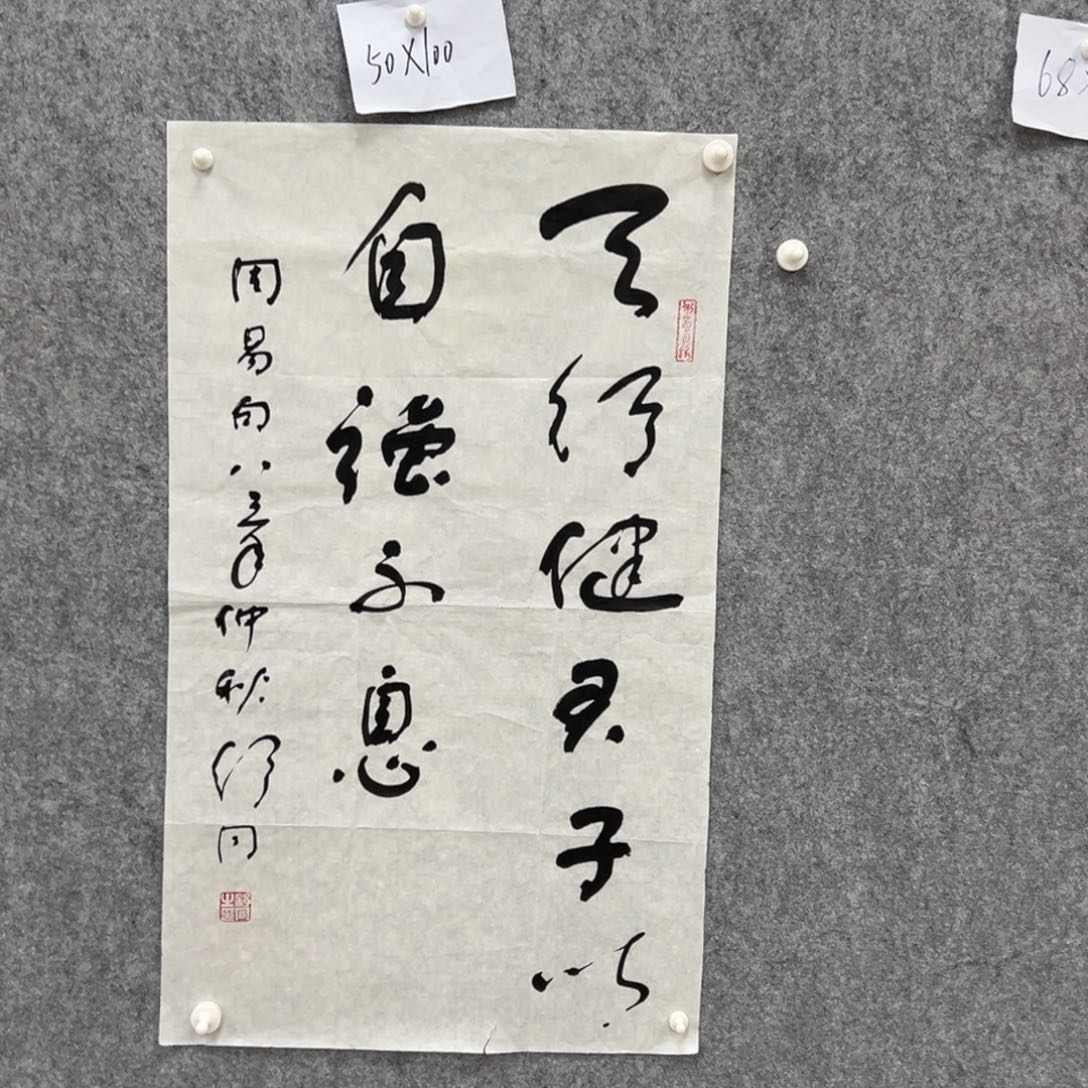 50X100
68X
天行健君子以
自强不息
周易句八三年仲秋舒同